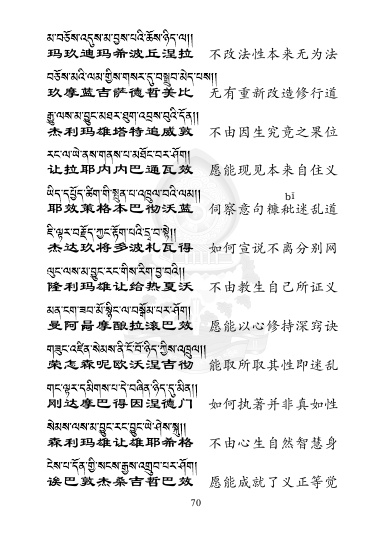 མ་བཅོས་འདུས་མ་བྱས་པའི་ཆོས་ཉིད་ལ།།
玛玖迪玛希波丘涅拉 不改法性本来无为法
བཅོས་མའི་ལམ་གྱིས་གསར་དུ་བསྒྲུབ་མེད་པས།།
玖摩蓝吉萨德哲美比 无有重新改造修行道
རྒྱུ་ལས་མ་བྱུང་མཐར་ཐུག་འབྲས་བུའི་དོན།།
杰利玛雄塔特追威敦 不由因生究竟之果位
རང་ལ་ཡེ་ནས་གནས་པ་མཐོང་བར་ཤོག།
让拉耶内内巴通瓦效 愿能现见本来自住义
ཡིད་དཔྱོད་ཚིག་གི་སྦུན་པ་འཁྲུལ་བའི་ལམ།།
bǐ
耶效策格本巴彻沃蓝 伺察意句糠秕迷乱道
ཇི་ལྟར་བརྗོད་ཀྱང་རྟོག་པའི་དྲ་བ་སྟེ།།
杰达玖将多波札瓦得 如何宣说不离分别网
ལུང་ལས་མ་བྱུང་རང་གིས་རིག་བྱ་བའི།།
隆利玛雄让给热夏沃 不由教生自己所证义
མན་ངག་ཟབ་མོ་སྙིང་ལ་བསྒོམ་པར་ཤོག།
曼阿昌摩酸拉滚巴效 愿能以心修持深窍诀
གཟུང་འཛིན་སེམས་ནི་ངོ་བོ་ཉིད་ཀྱིས་འཁྲུལ།།
荣怎森呢欧沃涅吉彻 能取所取其性即迷乱
གང་ལྟར་དམིགས་པ་དེ་བཞིན་ཉིད་དུ་མིན།།
刚达摩巴得因涅德门 如何执著并非真如性
སེམས་ལས་མ་བྱུང་རང་བྱུང་ཡེ་ཤེས་སྐུ།།
森利玛雄让雄耶希格 不由心生自然智慧身
ངེས་པ་དོན་གྱི་སངས་རྒྱས་འགྲུབ་པར་ཤོག།
诶巴敦杰桑吉哲巴效 愿能成就了义正等觉
70